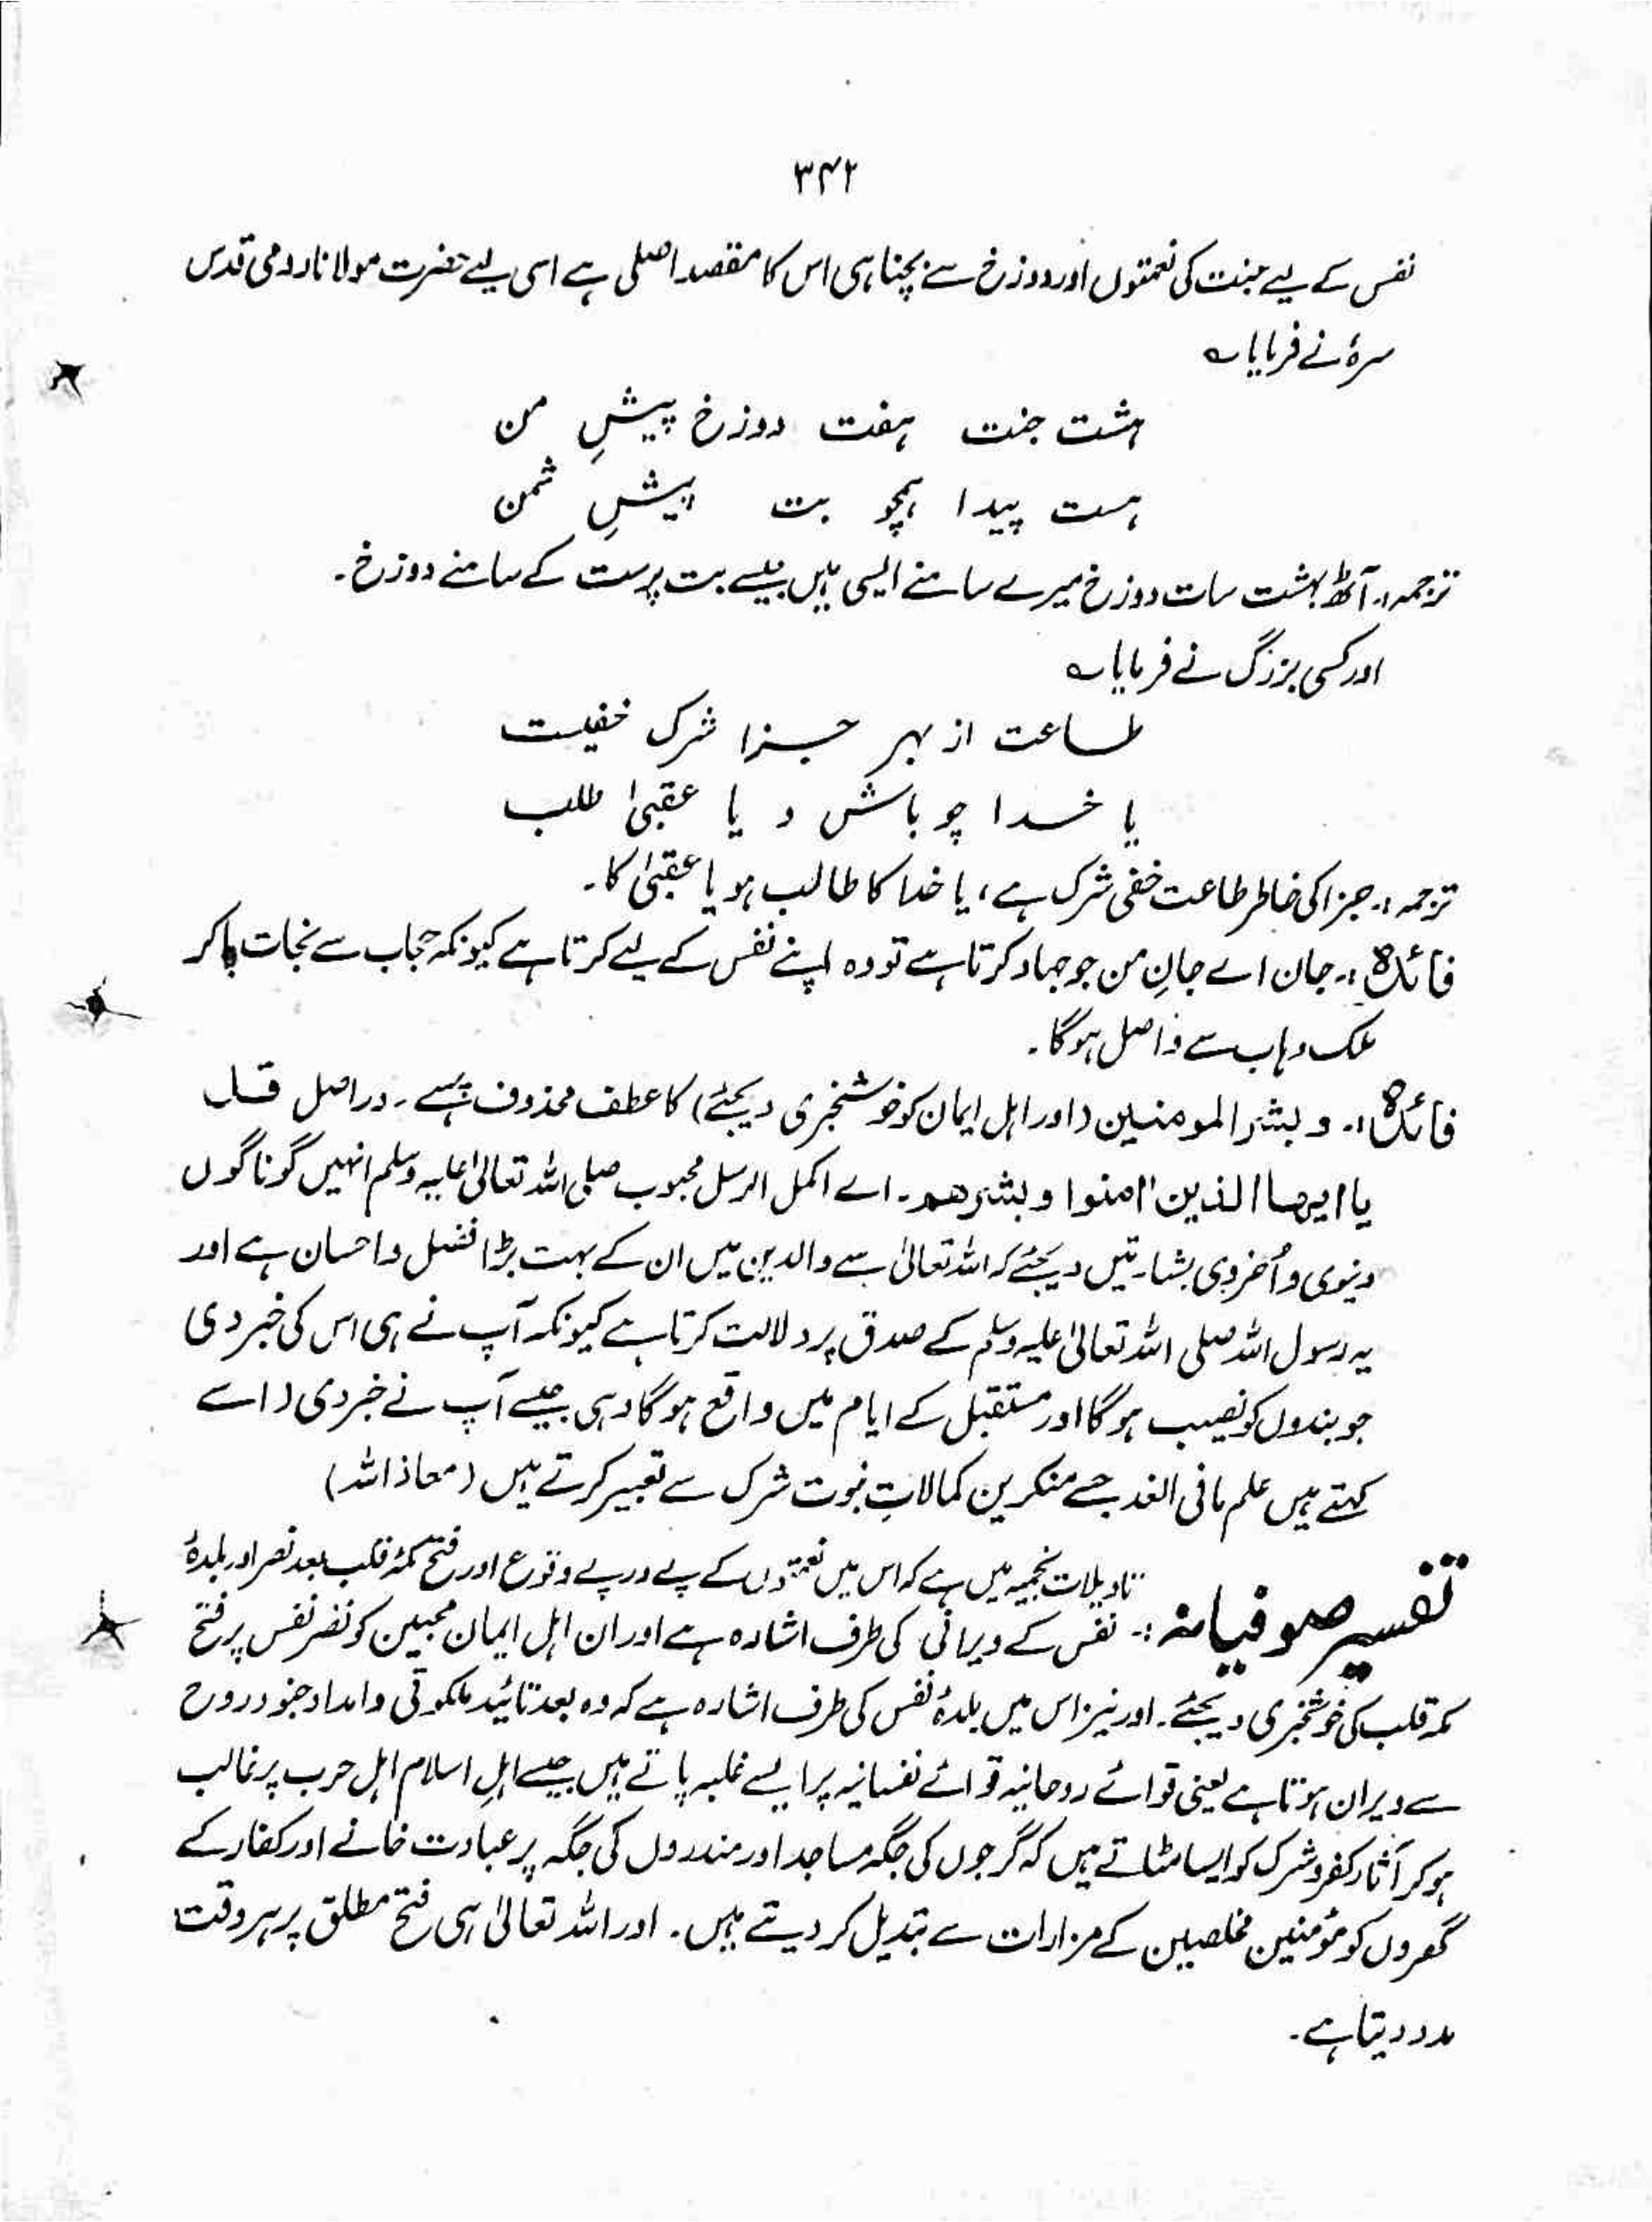 ۳۴۲
نفس کے لیے جنت کی نعمتوں اور دوزخ سے بچنا ہی اس کا مقصد اصلی ہے اسی لیے حضرت مولانا رومی قدس
سرہٗ نے فرمایا ؎
ہشت جنت ہفت دوزخ پیشِ من
ہست پیدا ہمچو بت پیشِ شمن
ترجمہ:۔ آٹھ بہشت سات دوزخ میرے سامنے ایسی ہیں جیسے بت پرست کے سامنے دوزخ۔
اور کسی بزرگ نے فرمایا ؎
طاعت از بہر جزا شرک خفیست
یا خدا جو باش و یا عقبیٰ طلب
ترجمہ:۔ جزا کی خاطر طاعت خفی شرک ہے، یا خدا کا طالب ہو یا عقبیٰ کا۔
فائدہ:۔ جان اے جانِ من جو جہاد کرتا ہے تو وہ اپنے نفس کے لیے کرتا ہے کیونکہ حجاب سے نجات پا کر
ملک وہاب سے واصل ہوگا۔
فائدہ:۔ و بشر المومنین (اور اہل ایمان کو خوشخبری دیجئے) کا عطف محذوف ہے۔ دراصل قل
یا ایھا الذین اٰمنوا و بشرھم۔ اے اکمل الرسل محبوب صلی اللہ تعالیٰ علیہ وسلم انہیں گوناگوں
دنیوی و اُخروی بشارتیں دیجئے کہ اللہ تعالیٰ سے والدین میں ان کے بہت بڑا فضل و احسان ہے اور
یہ رسول اللہ صلی اللہ تعالیٰ علیہ وسلم کے صدق پر دلالت کرتا ہے کیونکہ آپ نے ہی اس کی خبر دی
جو بندوں کو نصیب ہوگا اور مستقبل کے ایام میں واقع ہوگا وہی جیسے آپ نے خبر دی (اسے
کہتے ہیں علم مافی الغد جسے منکرین کمالاتِ نبوت شرک سے تعبیر کرتے ہیں (معاذ اللہ)
تاویلات نجمیہ میں ہے کہ اس میں نعمتوں کے پے در پے وقوع اور فتح مکۂ قلب بعد نصر اور بلدۂ
تفسیر صوفیانہ:۔ نفس کے ویرانی کی طرف اشارہ ہے اور ان اہل ایمان محبین کو نصر نفس پر فتح
مکہ قلب کی خوشخبری دیجئے۔ اور نیز اس میں بلدۂ نفس کی طرف اشارہ ہے کہ وہ بعد تائید ملکوتی و امداد جنود روح
سے ویران ہوتا ہے یعنی قوائے روحانیہ قوائے نفسانیہ پر ایسے غلبہ پاتے ہیں جیسے اہلِ اسلام اہل حرب پر غالب
ہو کر آثار کفر و شرک کو ایسا مٹاتے ہیں کہ گرجوں کی جگہ مساجد اور مندروں کی جگہ پر عبادت خانے اور کفار کے
گھروں کو مؤمنین مخلصین کے مزارات سے تبدیل کر دیتے ہیں۔ اور اللہ تعالیٰ ہی فتح مطلق پر ہر وقت
مدد دیتا ہے۔